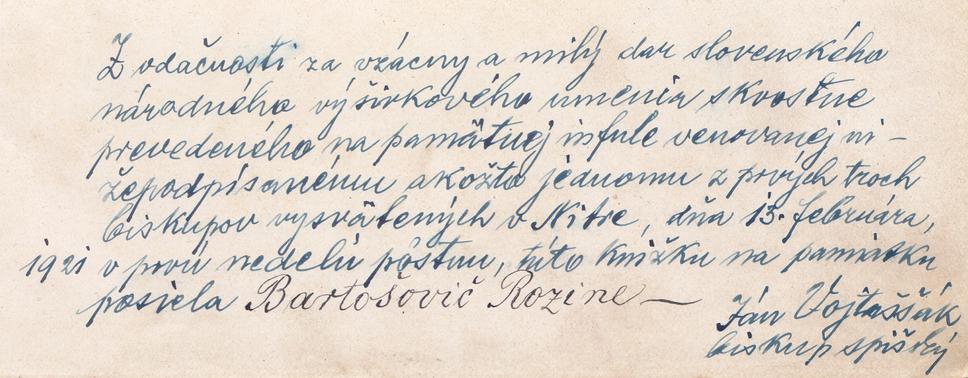 Z vďačnosti za vzácny a milý dar slovenského
národného výšivkového umenia skvostne
prevedeného na pamätnej infule venovanej ni-
žepodpísanému akožto jednomu z prvých troch
biskupov vysvätených v Nitre, dňa 13. februára,
1921 v prvú nedelu pôstnu, túto knižku na pamiatku
posiela Bartošovič Rozine —
Ján Vojtaššák
biskup spišský